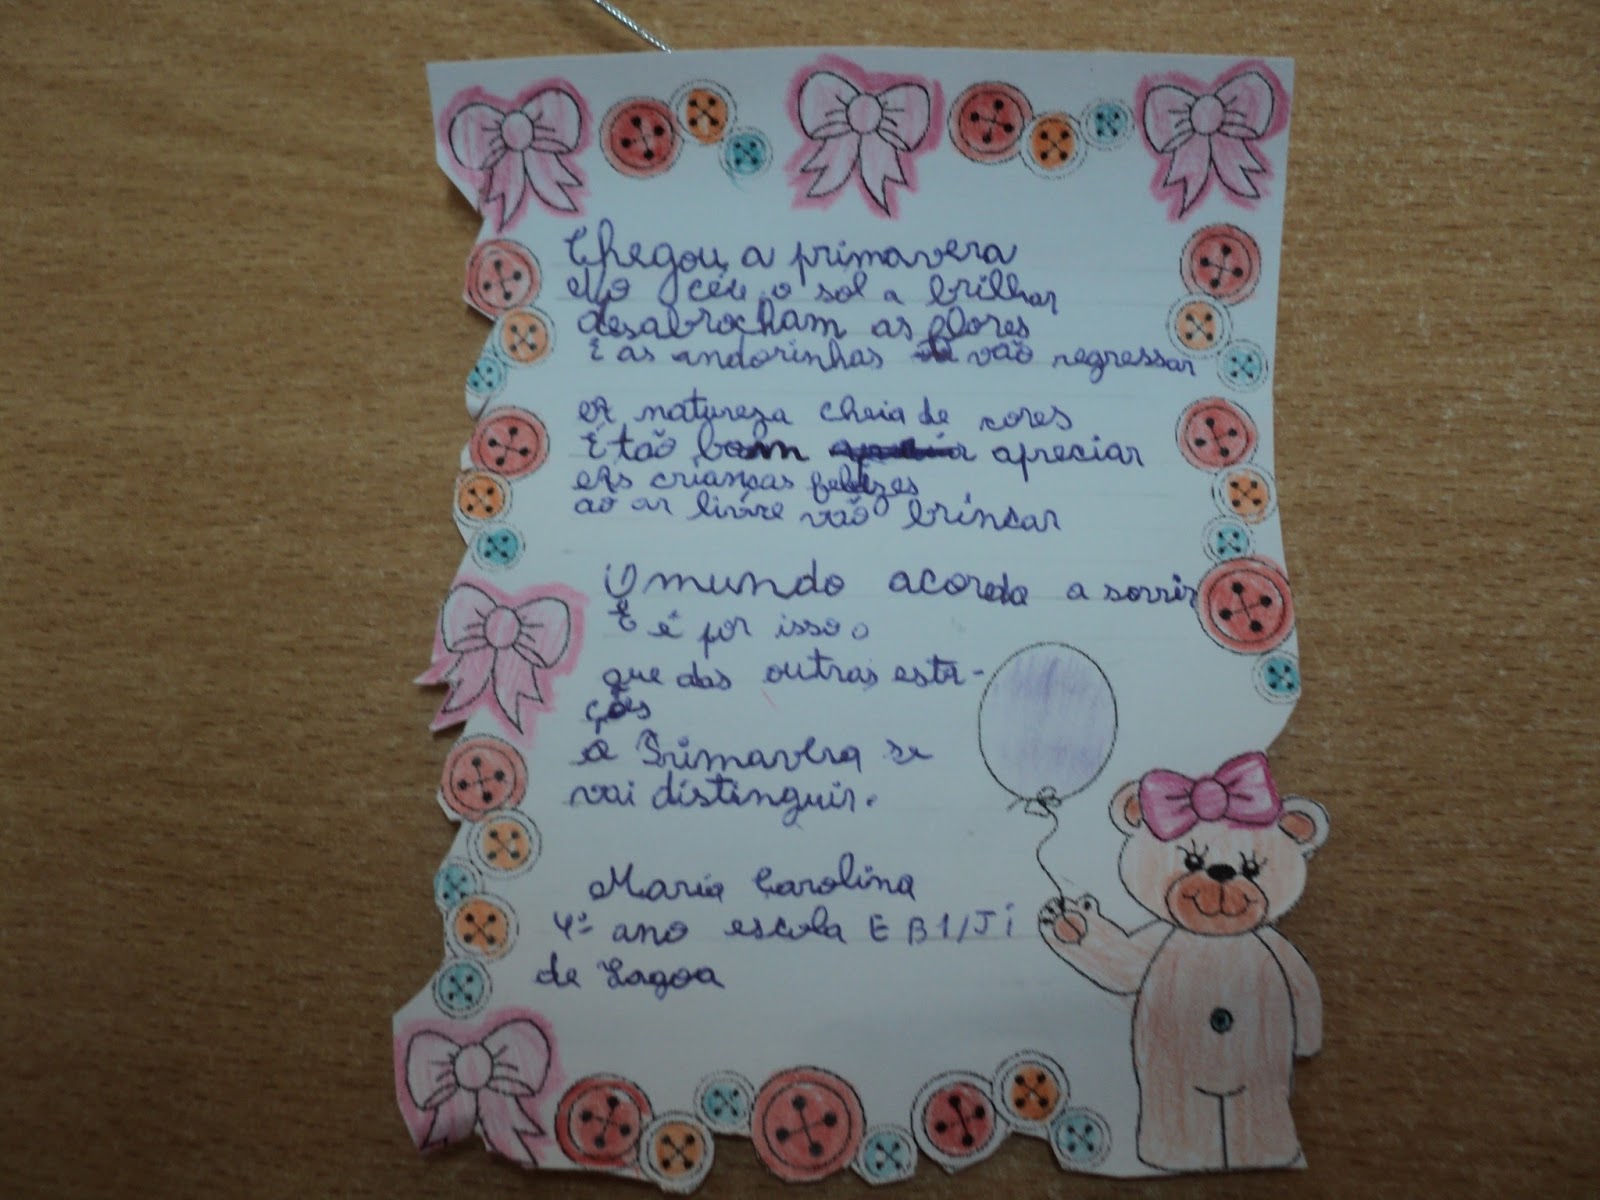 Chegou a primavera
No céu o sol a brilhar
desabrocham as flores
E as andorinhas vão regressar
A natureza cheia de cores
É tão bom apreciar
As crianças felizes
ao ar livre vão brincar
O mundo acorda a sorrir
E é por isso
que das outras esta-
ções
a Primavera se
vai distinguir.
Maria Carolina
4º ano escola EB1/JI
de Lagoa